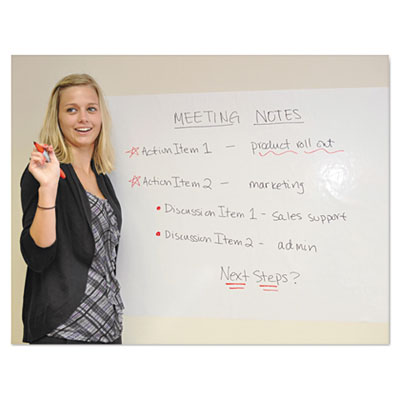 MEETING NOTES
Action Item 1 - product roll out
Action Item 2 - marketing
• Discussion Item 1 - sales support
• Discussion Item 2 - admin
Next Steps?